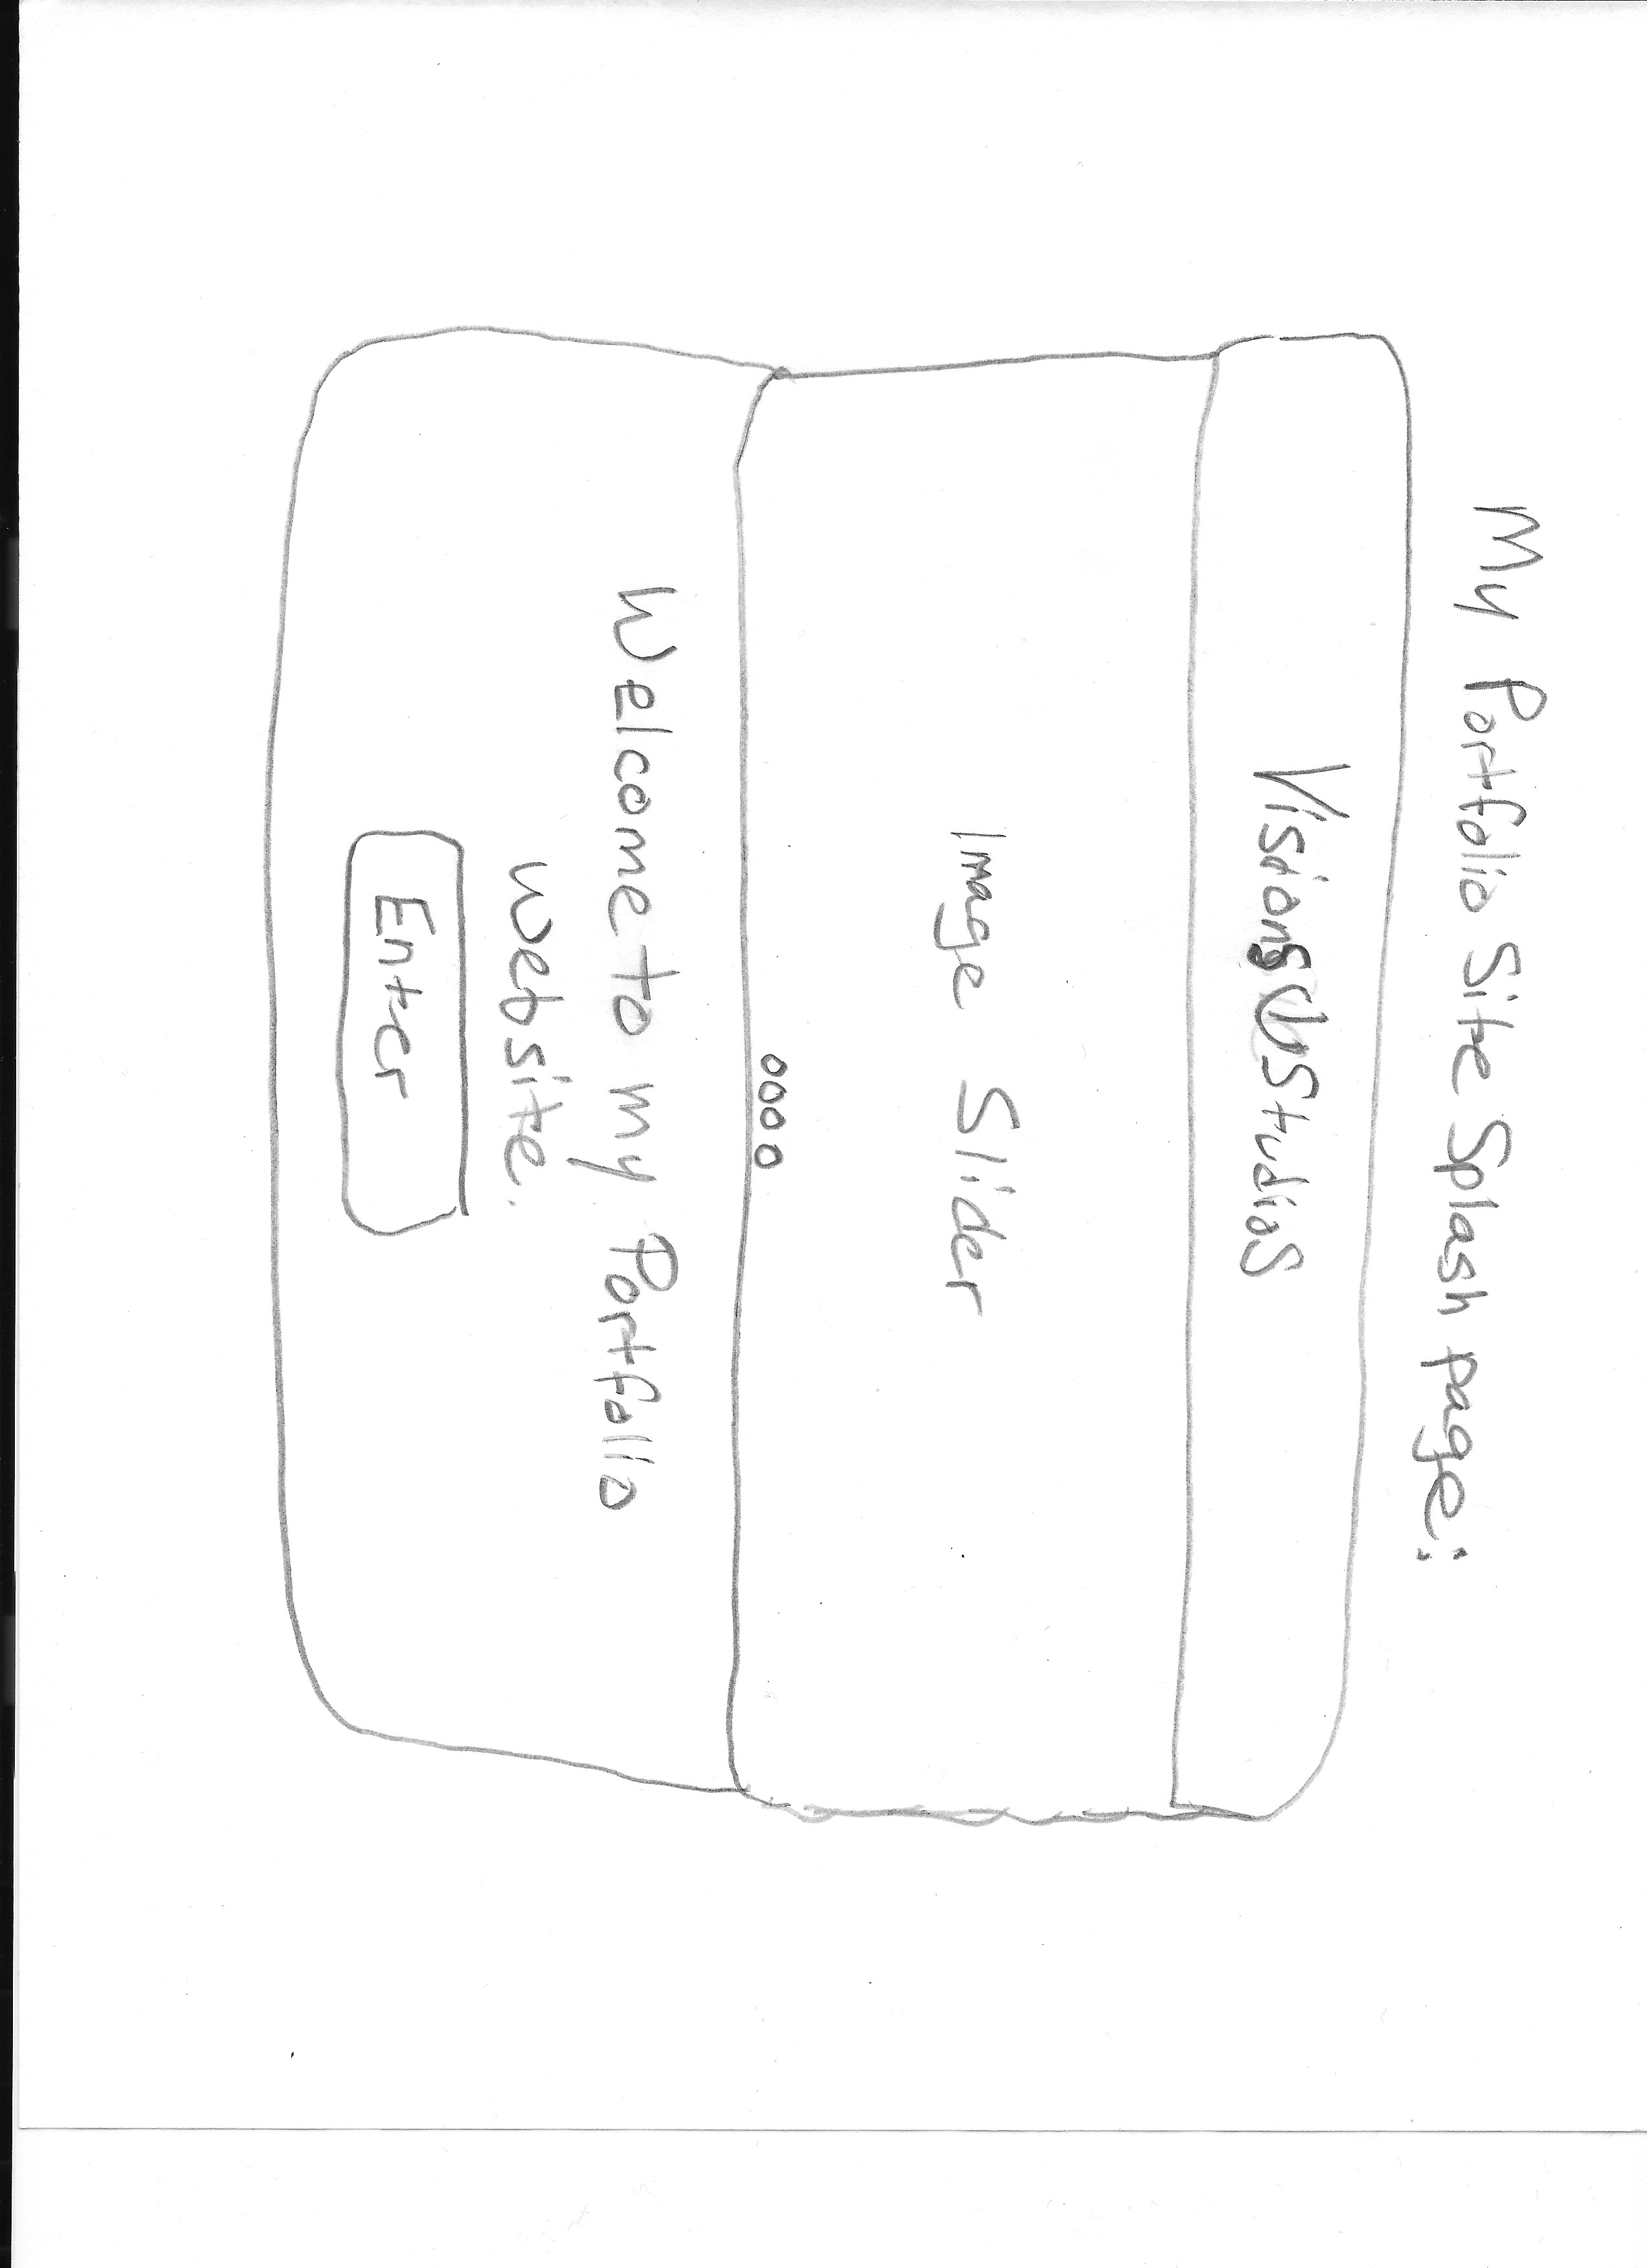 My Portfolio Site Splash page:
Visions Studios
Image Slider
Welcome to my Portfolio
website.
Enter